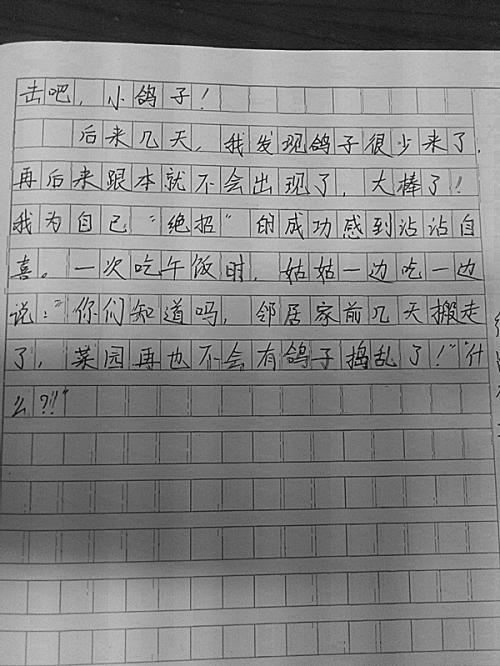 击吧，小鸽子！
后来几天，我发现鸽子很少来了，
再后来跟本就不会出现了，大棒了！
我为自己“绝招”的成功感到沾沾自
喜。一次吃午饭时，姑姑一边吃一边
说：“你们知道吗，邻居家前几天搬走
了，菜园再也不会有鸽子捣乱了！”“什
么？！！”